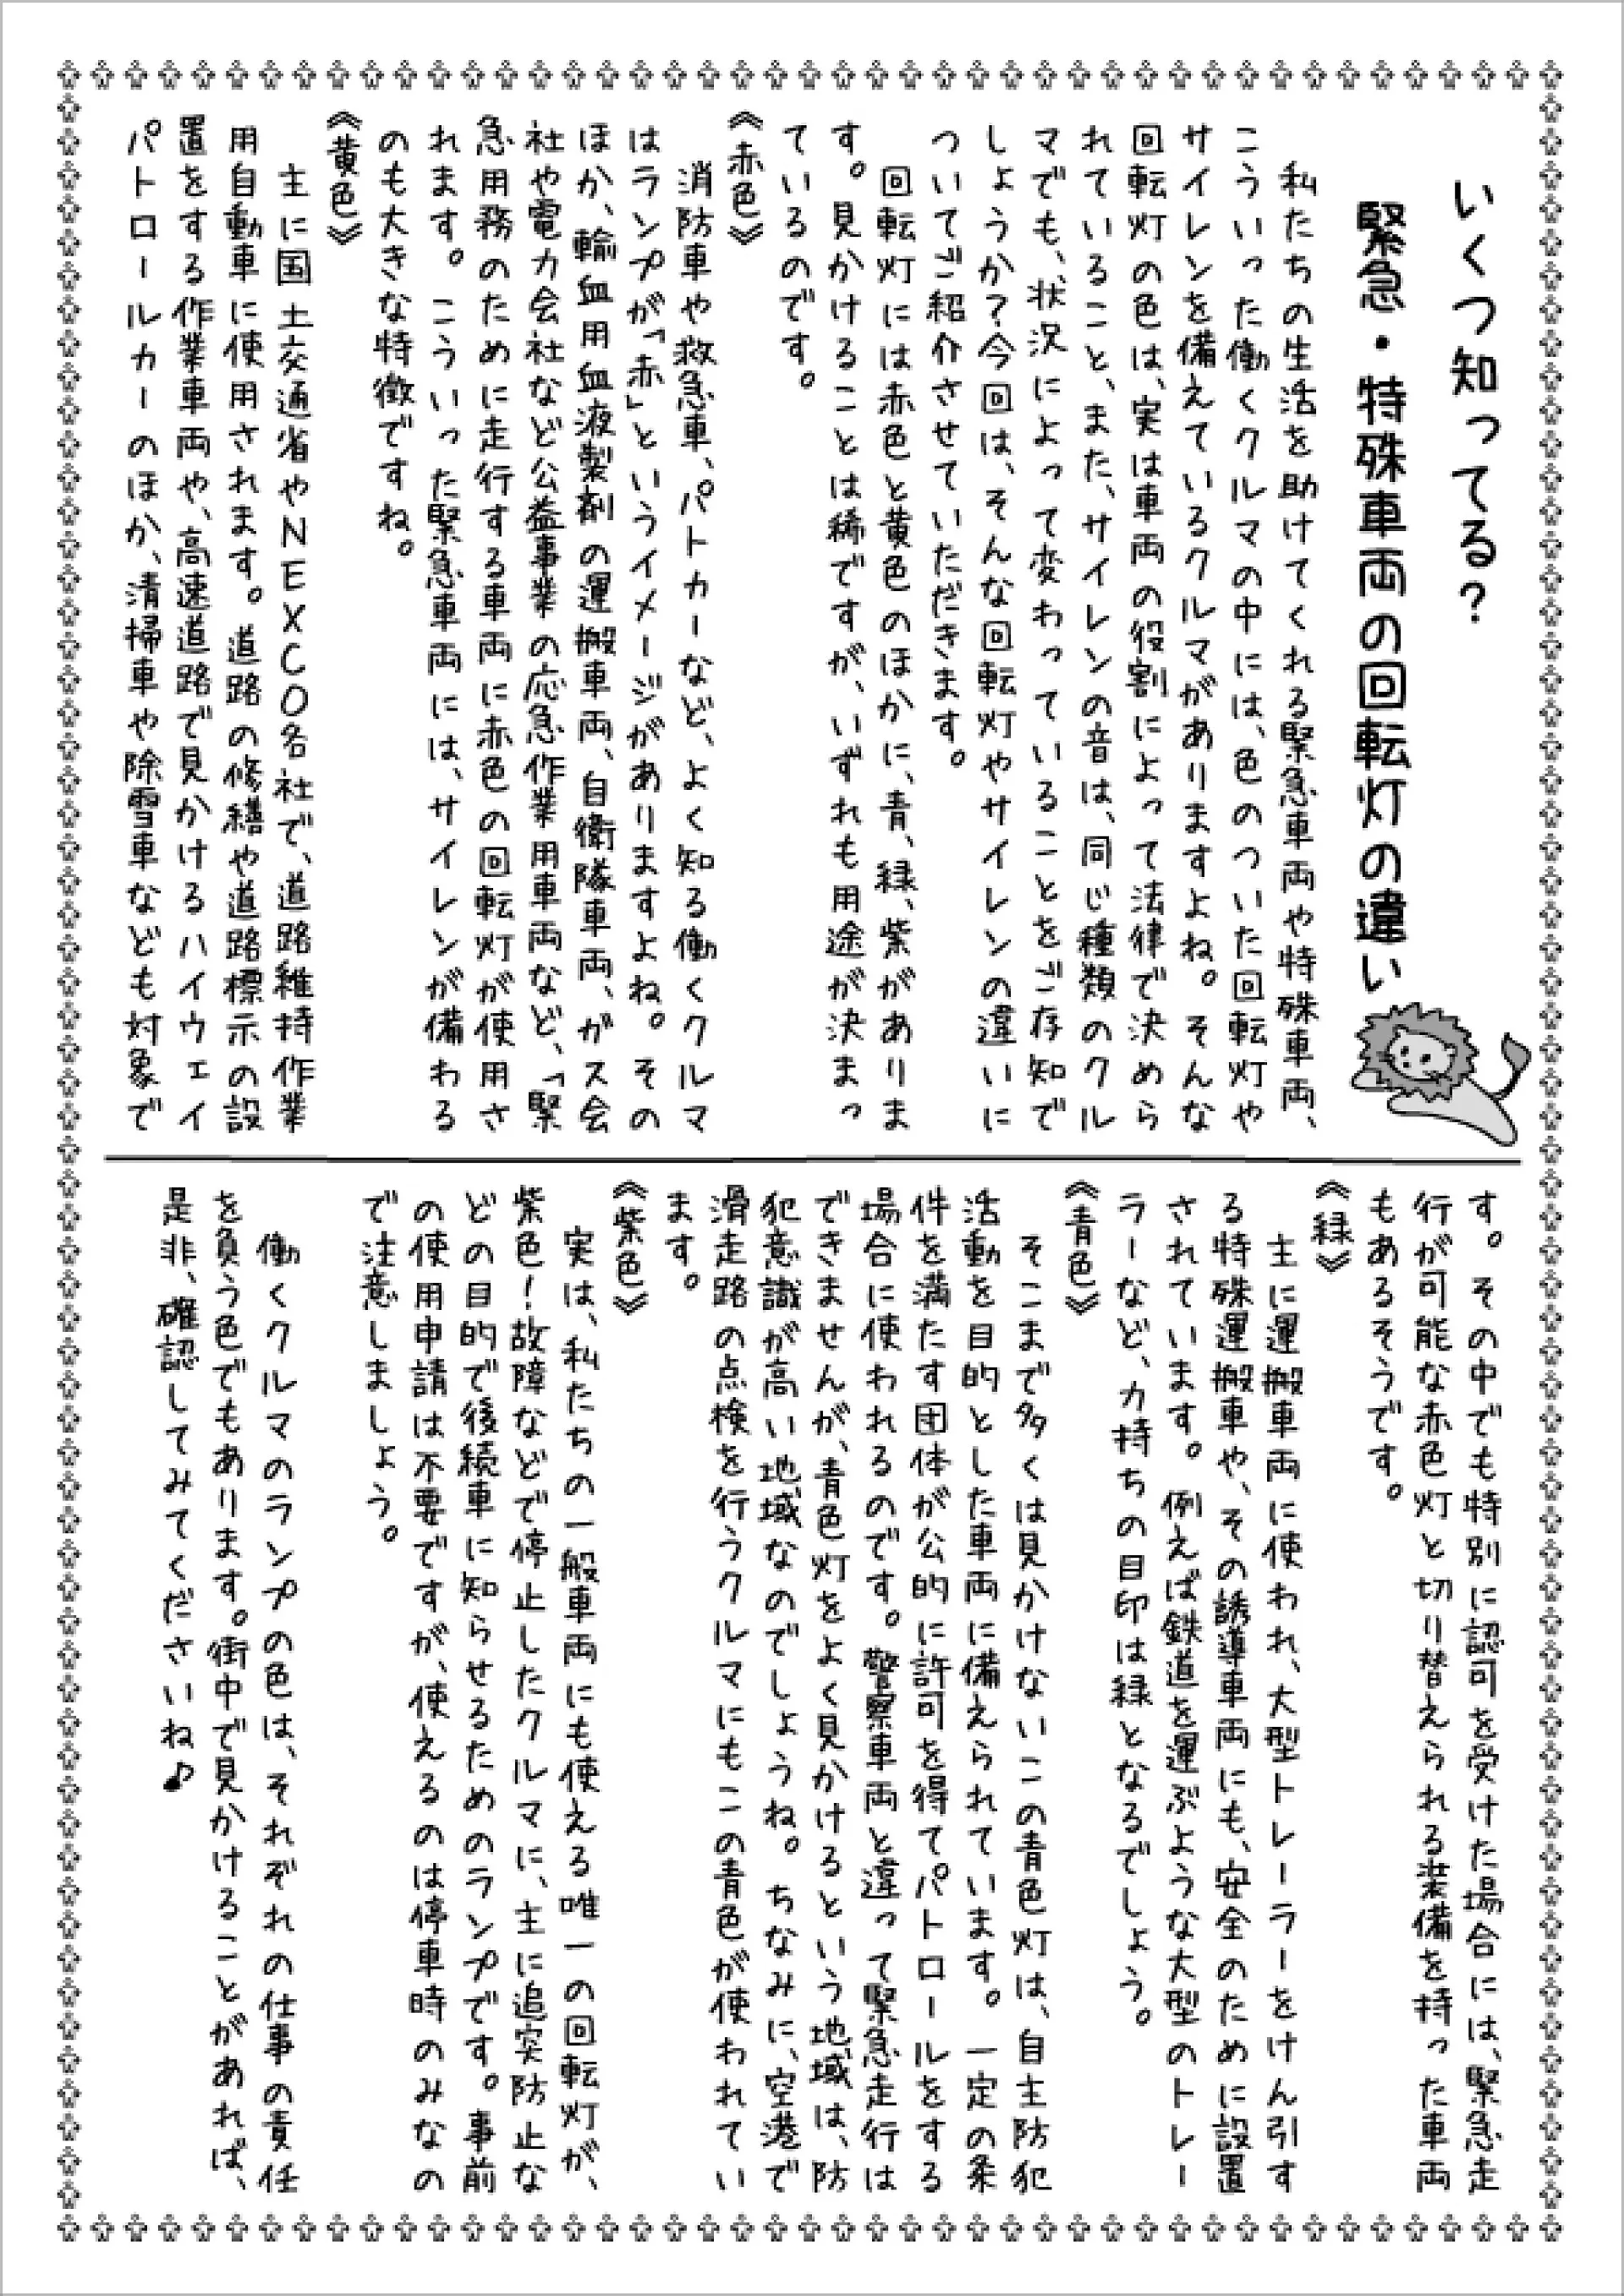 いくつ知ってる？
緊急・特殊車両の回転灯の違い
私たちの生活を助けてくれる緊急車両や特殊車両、
こういった働くクルマの中には、色のついた回転灯や
サイレンを備えているクルマがありますよね。そんな
回転灯の色は、実は車両の役割によって法律で決めら
れていること、また、サイレンの音は、同じ種類のクル
マでも、状況によって変わっていることをご存知で
しょうか？今回は、そんな回転灯やサイレンの違いに
ついてご紹介させていただきます。
回転灯には赤色と黄色のほかに、青、緑、紫がありま
す。見かけることは稀ですが、いずれも用途が決まっ
ているのです。
《赤色》
消防車や救急車、パトカーなど、よく知る働くクルマ
はランプが「赤」というイメージがありますよね。その
ほか、輸血用血液製剤の運搬車両、自衛隊車両、ガス会
社や電力会社など公益事業の応急作業用車両など、「緊
急用務のために走行する車両に赤色の回転灯が使用さ
れます。こういった緊急車両には、サイレンが備わる
のも大きな特徴ですね。
《黄色》
主に国土交通省やＮＥＸＣＯ各社で、道路維持作業
用自動車に使用されます。道路の修繕や道路標示の設
置をする作業車両や、高速道路で見かけるハイウェイ
パトロールカーのほか、清掃車や除雪車なども対象で
す。その中でも特別に認可を受けた場合には、緊急走
行が可能な赤色灯と切り替えられる装備を持った車両
もあるそうです。
《緑》
主に運搬車両に使われ、大型トレーラーをけん引す
る特殊運搬車や、その誘導車両にも、安全のために設置
されています。例えば鉄道を運ぶような大型のトレー
ラーなど、力持ちの目印は緑となるでしょう。
《青色》
そこまで多くは見かけないこの青色灯は、自主防犯
活動を目的とした車両に備えられています。一定の条
件を満たす団体が公的に許可を得てパトロールをする
場合に使われるのです。警察車両と違って緊急走行は
できませんが、青色灯をよく見かけるという地域は、防
犯意識が高い地域なのでしょうね。ちなみに、空港で
滑走路の点検を行うクルマにもこの青色が使われてい
ます。
《紫色》
実は、私たちの一般車両にも使える唯一の回転灯が、
紫色！故障などで停止したクルマに、主に追突防止な
どの目的で後続車に知らせるためのランプです。事前
の使用申請は不要ですが、使えるのは停車時のみなの
で注意しましょう。
働くクルマのランプの色は、それぞれの仕事の責任
を負う色でもあります。街中で見かけることがあれば、
是非、確認してみてくださいね♪